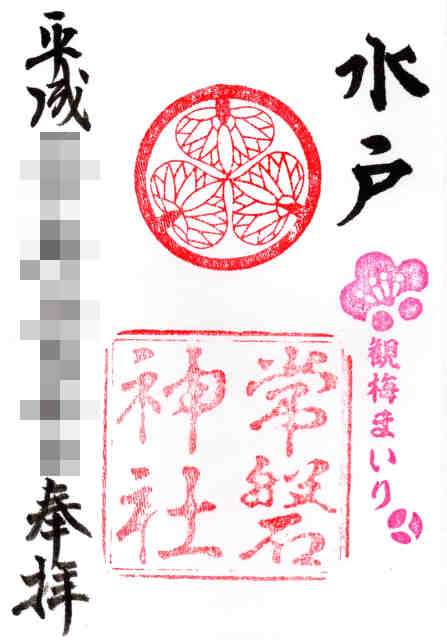 水戸
観梅まいり
常磐
神社
平成
奉拝